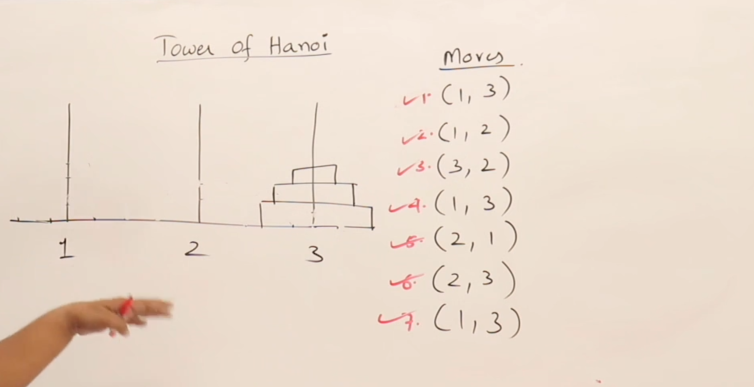 Tower of Hanoi
Moves
1. (1, 3)
2. (1, 2)
3. (3, 2)
4. (1, 3)
5. (2, 1)
6. (2, 3)
7. (1, 3)
1 2 3